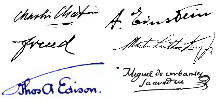 Charles Chaplin
A. Einstein
Freud
Martin Luther King Jr
Thos A Edison.
Miguel de cerbantes
Saavedra